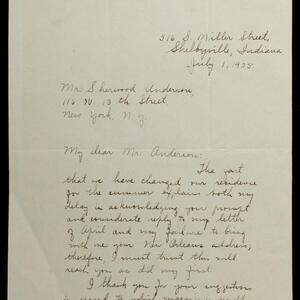 316 S. Miller Street,
Shelbyville, Indiana
July 1, 1925.
Mr. Sherwood Anderson
116 W. 13th Street
New York, N.Y.
My dear Mr. Anderson:
The fact
that we have changed our residence
for the summer explains both my
delay in acknowledging your prompt
and considerate reply to my letter
of April and my failure to bring
with me your New Orleans address;
therefore, I must trust this will
reach you as did my first.
I thank you for your suggestions
in regard to which magazines might